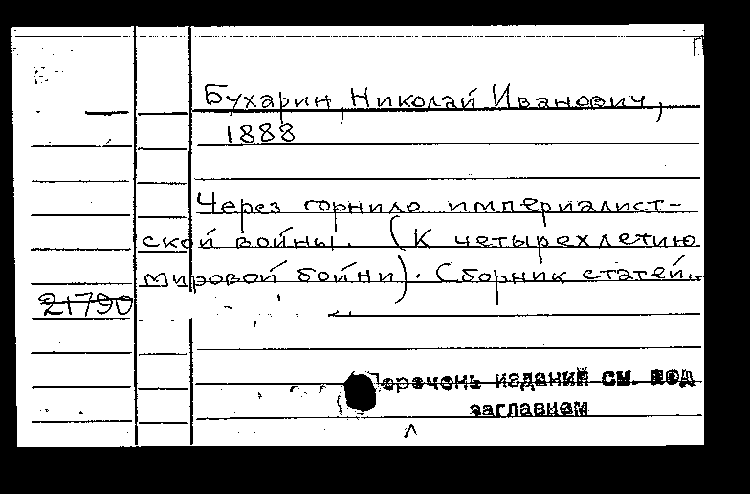 Бухарин, Николай Иванович,
1888
Через горнило империалист-
ской войны. (К четырехлетию
мировой бойни). Сборник статей.
21790
Перечень изданий см. под
заглавием